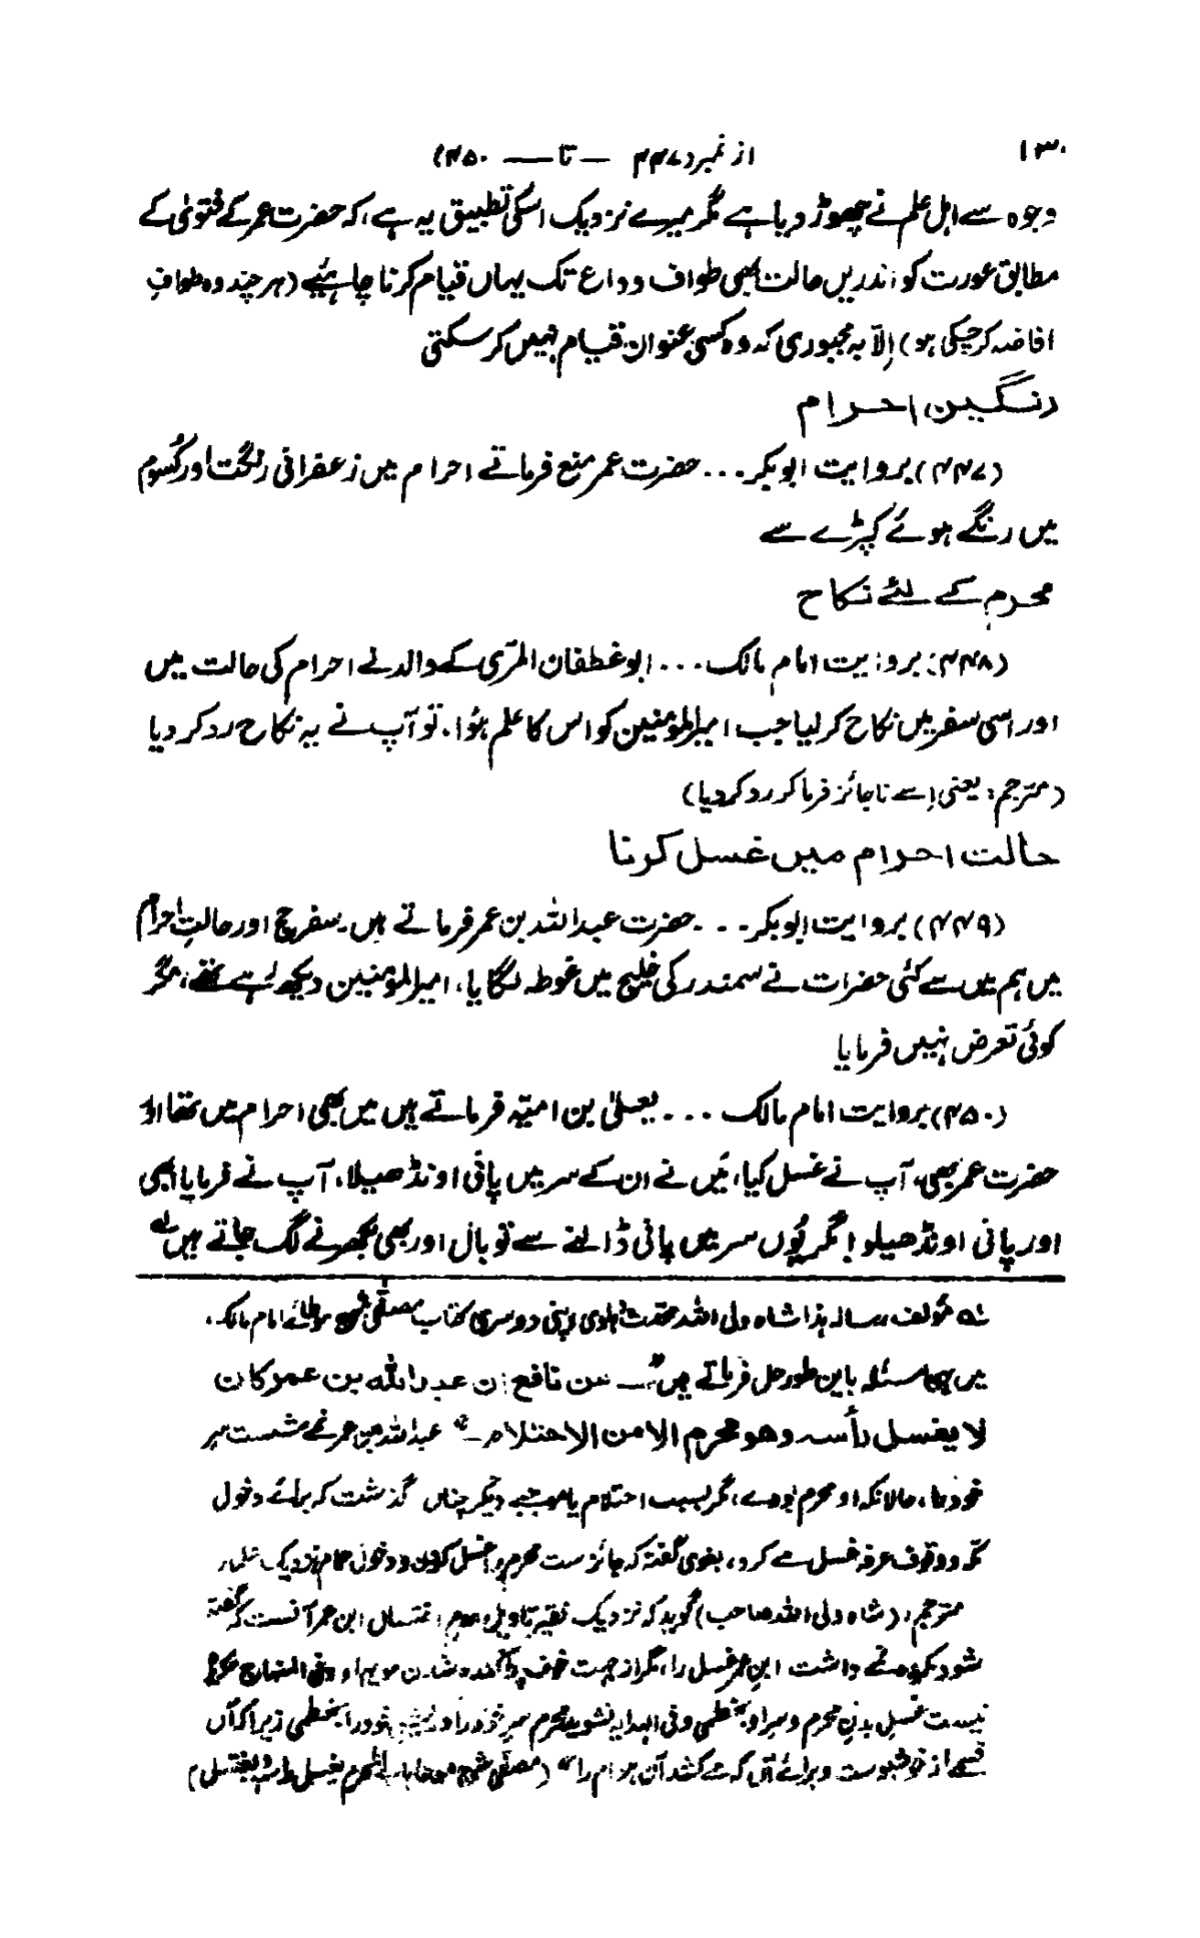 ۱۳۰
از نمبر (۴۴۷ — تا — ۴۵۰)
وجوہ سے اہل علم نے چھوڑ دیا ہے مگر میرے نزدیک اسکی تطبیق یہ ہے، کہ حضرت عمر کے فتویٰ کے
مطابق عورت کو اندریں حالت بھی طواف وداع تک یہاں قیام کرنا چاہئیے (ہر چند وہ طوافِ
افاضہ کر چکی ہو) اِلّا بہ مجبوری کہ وہ کسی عنوان قیام نہیں کر سکتی
رنگین احرام
(۴۴۷) بروایت ابوبکر... حضرت عمر منع فرماتے احرام میں زعفرانی رنگت اور کُسوم
میں رنگے ہوئے کپڑے سے
محرم کے لئے نکاح
(۴۴۸) بروایت امام مالک... ابو غطفان المرّی کے والد نے احرام کی حالت میں
اور اسی سفر میں نکاح کر لیا جب امیرالمؤمنین کو اس کا علم ہؤا، تو آپ نے یہ نکاح رد کر دیا
(مترجم: یعنی اسے ناجائز فرما کر رد کر دیا)
حالت احرام میں غسل کرنا
(۴۴۹) بروایت ابوبکر... حضرت عبداللہ بن عمر فرماتے ہیں۔ سفر حج اور حالتِ احرام
میں ہم میں سے کئی حضرات نے سمندر کی خلیج میں غوطہ لگایا، امیرالمؤمنین دیکھ رہے تھے، مگر
کوئی تعرض نہیں فرمایا
(۴۵۰) بروایت امام مالک... یعلیٰ بن امیّہ فرماتے ہیں میں بھی احرام میں تھا اور
حضرت عمر بھی، آپ نے غسل کیا، مَیں نے ان کے سر میں پانی اونڈھیلا، آپ نے فرمایا ابھی
اور پانی اونڈھیلو! مگر یُوں سر میں پانی ڈالنے سے تو بال اور بھی بکھرنے لگ جاتے ہیں لہ
لہ مؤلف رسالہ ہذا شاہ ولی اللہ محدث دہلوی اپنی دوسری کتاب مصفّٰی شرح موطائے امام مالک،
میں یہی مسئلہ باین طور حل فرماتے ہیں "— عن نافع ان عبداللہ بن عمر کان
لا یغسل رأسہ وھو محرم الا من الاحتلام —" عبداللہ بن عمر نمے شست سر
خود را، حالانکہ او محرم بودے، مگر بسبب احتلام یا موجبے دیگر چناں گذشت کہ برائے دخول
مکہ و وقوف عرفہ غسل مے کرد، بغوی گفتہ کہ جائز ست محرم را غسل کردن و دخول حمام نزدیک علماء
مترجم: (شاہ ولی اللہ صاحب) گوید کہ نزدیک فقیر تاویل عدم اغتسال ابن عمر آنست کہ گفتہ
شود مکروہ مے داشت ابن عمر غسل را، مگر از جہت خوف پراگندہ شدن مویہا و فی المنہاج مکروہ
نیست غسل بدنِ محرم و سر او بخطمی و فی الہدایہ نشوید محرم سر خود را و نہ ریش خود را بخطمی زیرا کہ آں
قسمے از خوشبوست و برائے آں کہ مے کشد آن ہوام را" (مصفّٰی شرح موطا باب المحرم یغسل رأسہ و یغتسل)